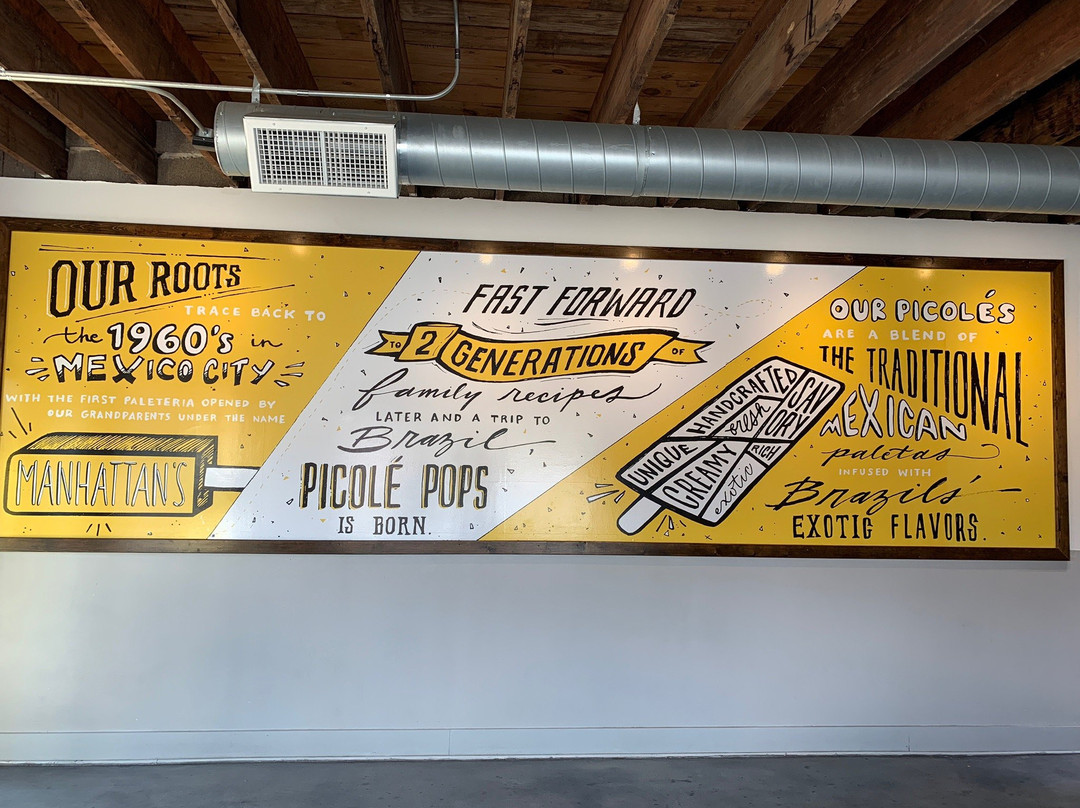 OUR ROOTS
TRACE BACK TO
the 1960's in
MEXICO CITY
WITH THE FIRST PALETERIA OPENED BY
OUR GRANDPARENTS UNDER THE NAME
MANHATTAN'S
FAST FORWARD
TO 2 GENERATIONS OF
family recipes
LATER AND A TRIP TO
Brazil
PICOLÉ POPS
IS BORN.
UNIQUE HANDCRAFTED SAVORY
CREAMY fresh RICH
exotic
OUR PICOLÉS
ARE A BLEND OF
THE TRADITIONAL
MEXICAN
paletas
INFUSED WITH
Brazil's
EXOTIC FLAVORS.